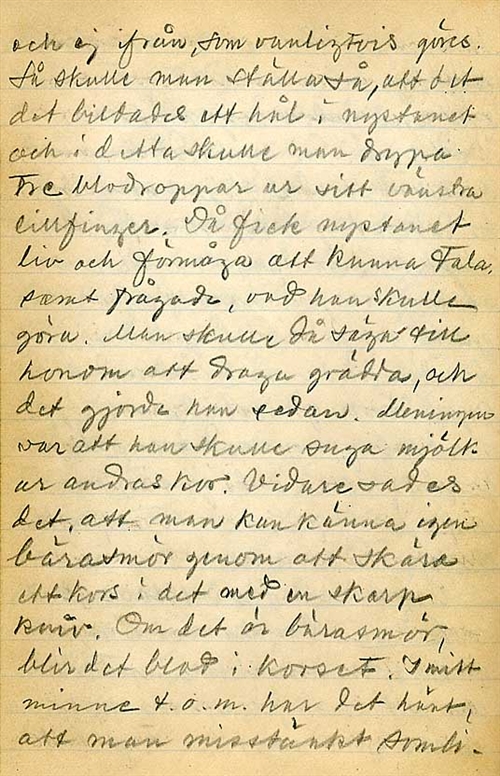 och ej ifrån, som vanligtvis göres.
Så skulle man ställa så, att det
det bildades ett hål i nystanet
och i detta skulle man drypa
tre blodroppar ur sitt vänstra
lillfinger. Då fick nystanet
liv och förmåga att kunna tala,
samt frågade, vad han skulle
göra. Man skulle då säga till
honom att draga grädda, och
det gjorde han sedan. Meningen
var att han skulle suga mjölk
ur andras kor. Vidare sades
det, att man kan känna igen
bärasmör genom att skära
ett kors i det med en skarp
kniv. Om det är bärasmör,
blir det blod i korset. I mitt
minne t.o.m. har det hänt,
att man misstänkt somli-